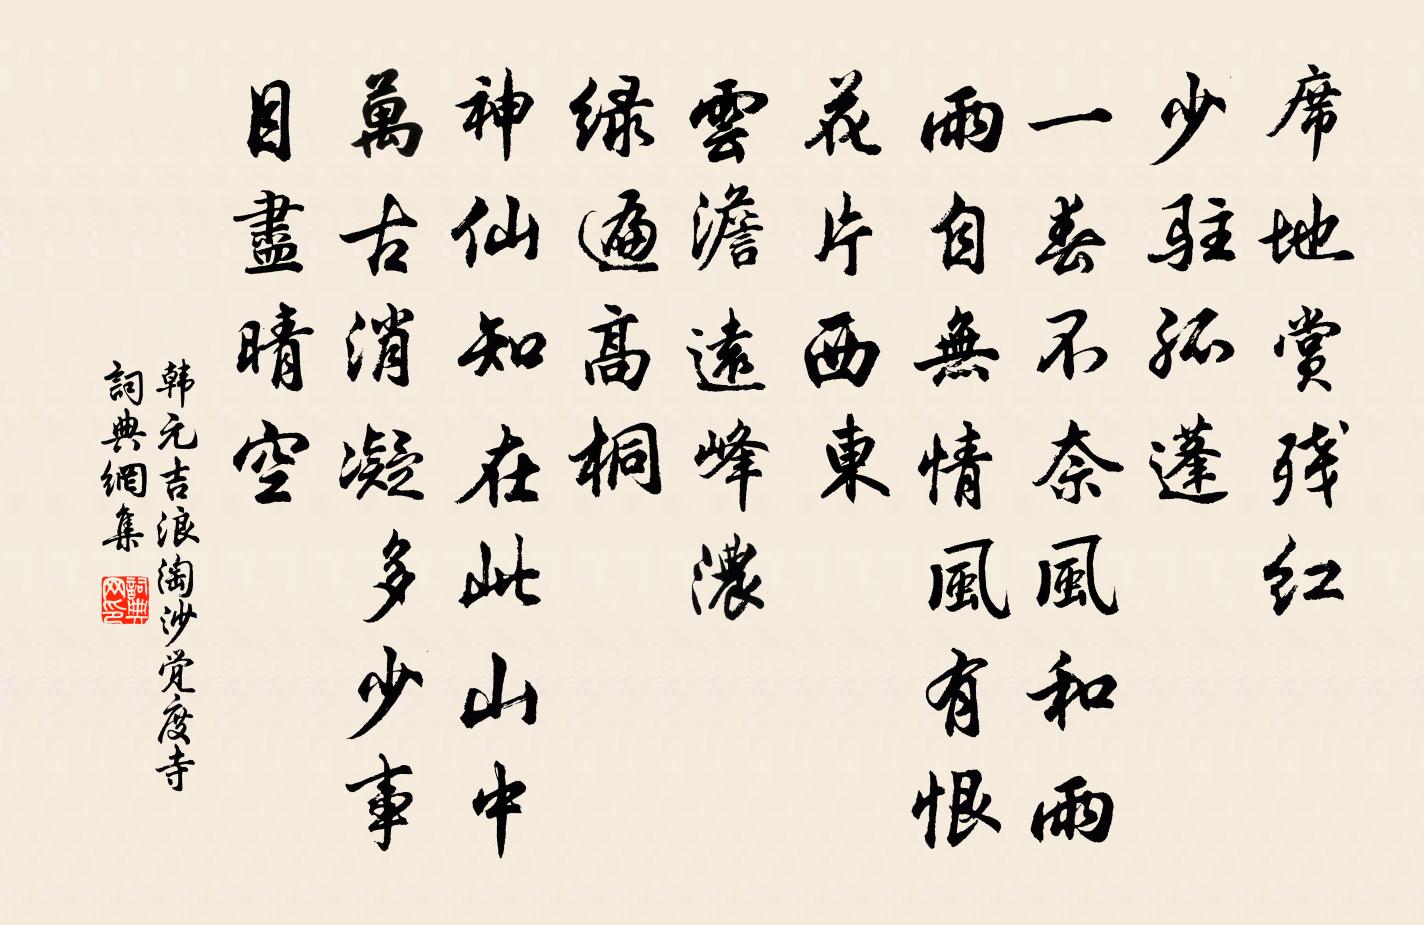 席地赏残红
少駐孤蓬
一春不奈風和雨
雨自無情風有恨
花片西東
雲澹遠峰濃
绿遍高桐
神仙知在此山中
萬古消凝多少事
目盡晴空
韩元吉浪淘沙觉度寺
詞典網集
詞典网印